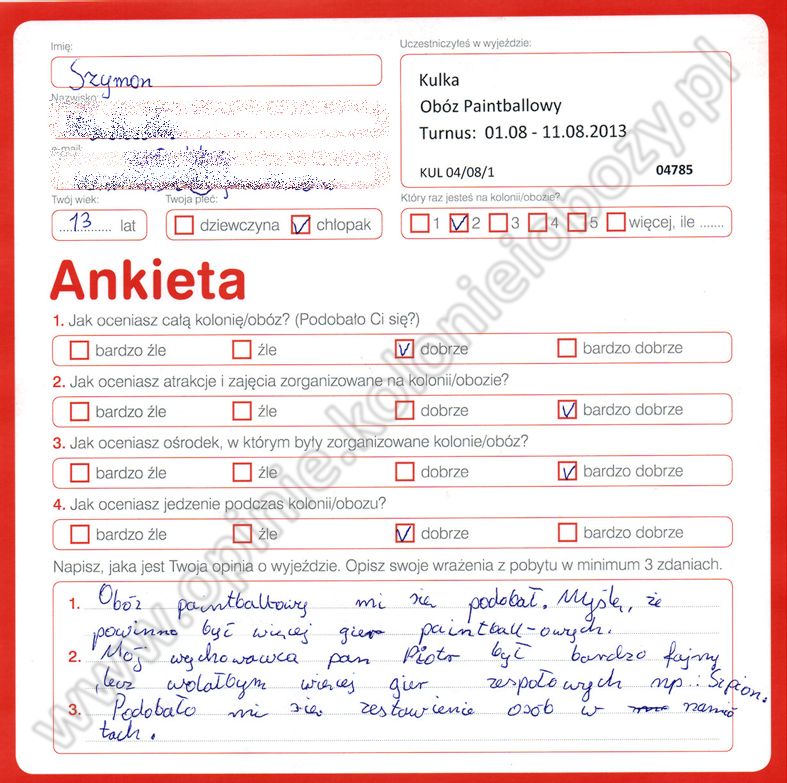 Imię:
Szymon
Uczestniczyłeś w wyjeździe:
Kulka
Obóz Paintballowy
Turnus: 01.08 - 11.08.2013
KUL 04/08/1 04785
Nazwisko:
e-mail:
Twój wiek:
13 lat
Twoja płeć:
dziewczyna chłopak
Który raz jesteś na kolonii/obozie?
1 2 3 4 5 więcej, ile .......
Ankieta
1. Jak oceniasz całą kolonię/obóz? (Podobało Ci się?)
bardzo źle źle dobrze bardzo dobrze
2. Jak oceniasz atrakcje i zajęcia zorganizowane na kolonii/obozie?
bardzo źle źle dobrze bardzo dobrze
3. Jak oceniasz ośrodek, w którym były zorganizowane kolonie/obóz?
bardzo źle źle dobrze bardzo dobrze
4. Jak oceniasz jedzenie podczas kolonii/obozu?
bardzo źle źle dobrze bardzo dobrze
Napisz, jaka jest Twoja opinia o wyjeździe. Opisz swoje wrażenia z pobytu w minimum 3 zdaniach.
1. Obóz paintballowy mi się podobał. Myślę, że
powinno być więcej gier paintball-owych.
2. Mój wychowawca pan Piotr był bardzo fajny
, lecz wolałbym więcej gier zespołowych np.: Szpion.
3. Podobało mi się zestawienie osób w namio
tach.
www.opinie.kolonieiobozy.pl